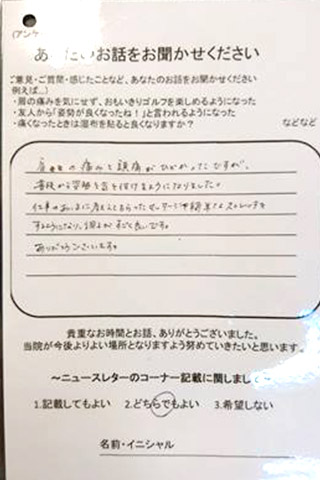 (アンケ
あなたのお話をお聞かせください
ご意見・ご質問・感じたことなど、あなたのお話をお聞かせください
例えば…)
・肩の痛みを気にせず、おもいきりゴルフを楽しめるようになった
・友人から「姿勢が良くなったね!」と言われるようになった
・痛くなったときは湿布を貼ると良くなりますか? などなど
の痛みと頭痛がひどかったですが、
普段から姿勢を気を付けるようになりました。
仕事のあいまに教えてもらったマッサージや簡単なストレッチを
するようになり、調子がすごく良いです。
ありがとうございます。
貴重なお時間とお話、ありがとうございました。
当院が今後よりよい場所となりますよう努めていきたいと思います。
~ニュースレターのコーナー記載に関しまして~
1.記載してもよい 2.どちらでもよい 3.希望しない
名前・イニシャル